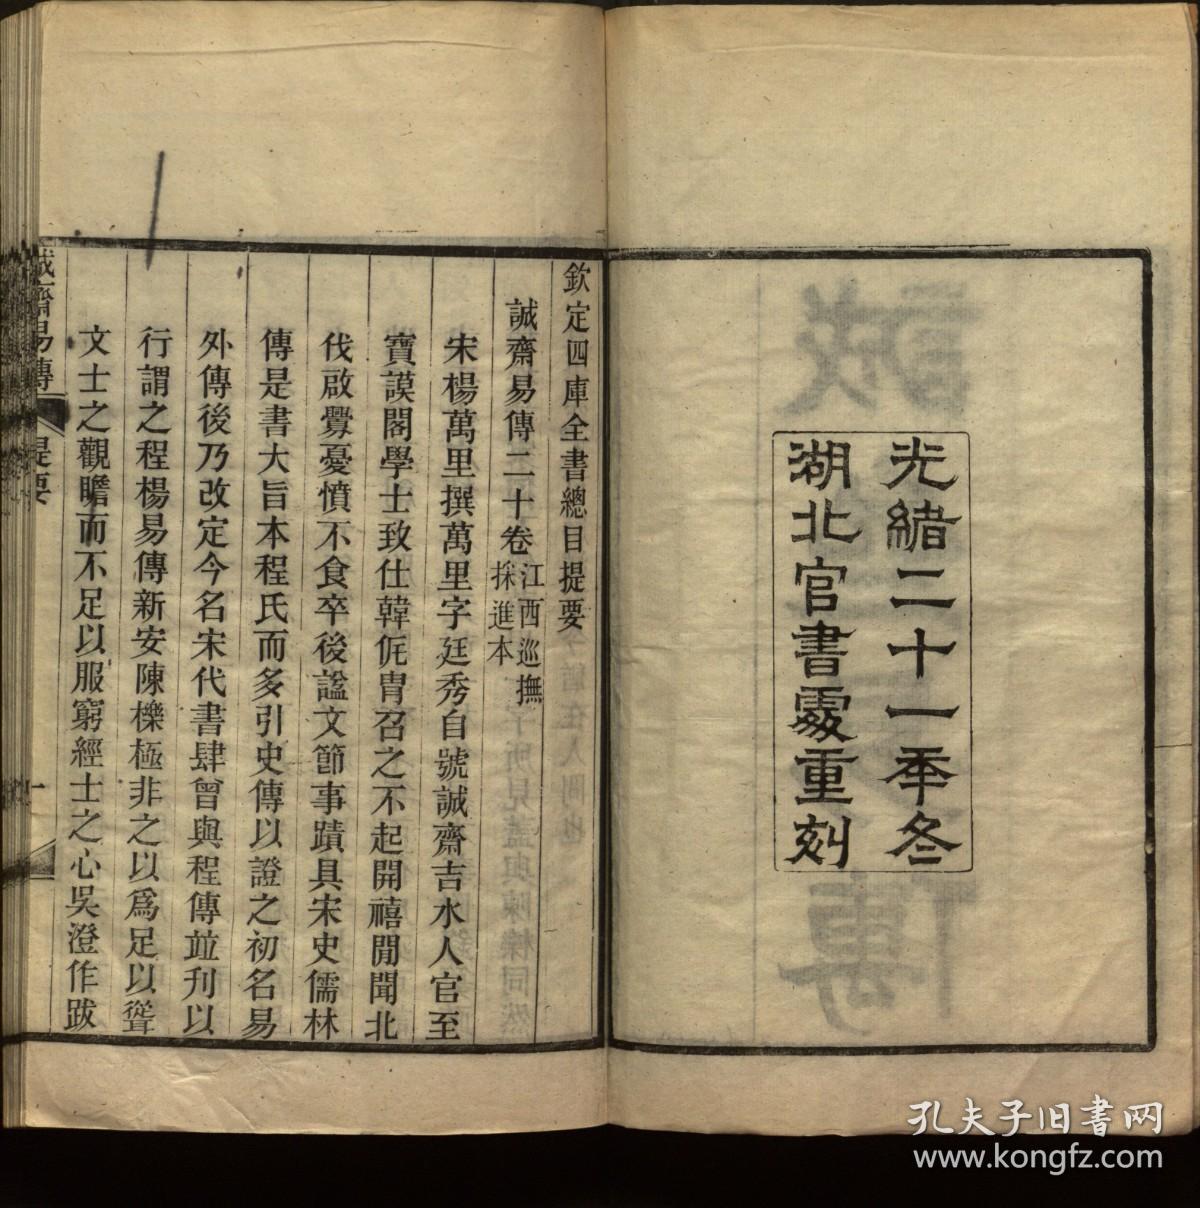 光緒二十一年冬
湖北官書處重刻
欽定四庫全書總目提要
誠齋易傳二十卷江西巡撫採進本
宋楊萬里撰萬里字廷秀自號誠齋吉水人官至
寶謨閣學士致仕韓侂冑召之不起開禧閒聞北
伐啟釁憂憤不食卒後諡文節事蹟具宋史儒林
傳是書大旨本程氏而多引史傳以證之初名易
外傳後乃改定今名宋代書肆曾與程傳並刊以
行謂之程楊易傳新安陳櫟極非之以爲足以聳
文士之觀瞻而不足以服窮經士之心吳澄作跋
誠齋易傳
提要
一
孔夫子旧书网
www.kongfz.com